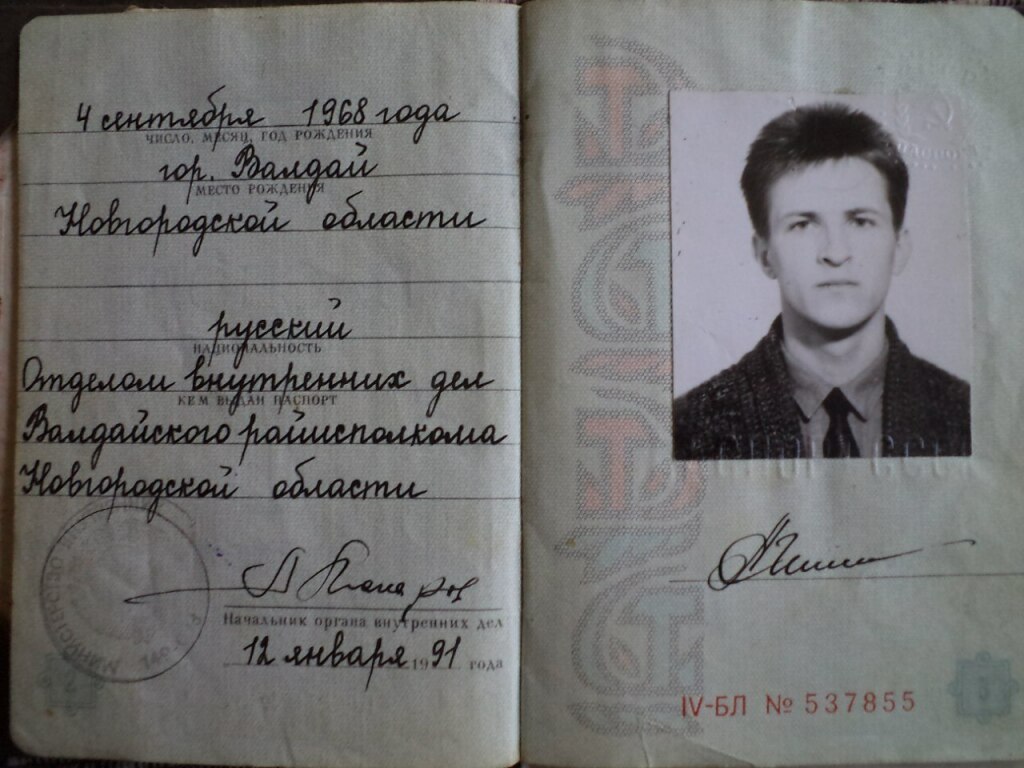 4 сентября 1968 года
ЧИСЛО, МЕСЯЦ, ГОД РОЖДЕНИЯ
гор. Валдай
МЕСТО РОЖДЕНИЯ
Новгородской области
русский
НАЦИОНАЛЬНОСТЬ
Отделом внутренних дел
КЕМ ВЫДАН ПАСПОРТ
Валдайского райисполкома
Новгородской области
МИНИСТЕРСТВО
Начальник органа внутренних дел
12 января 1991 года
IV-БЛ № 537855